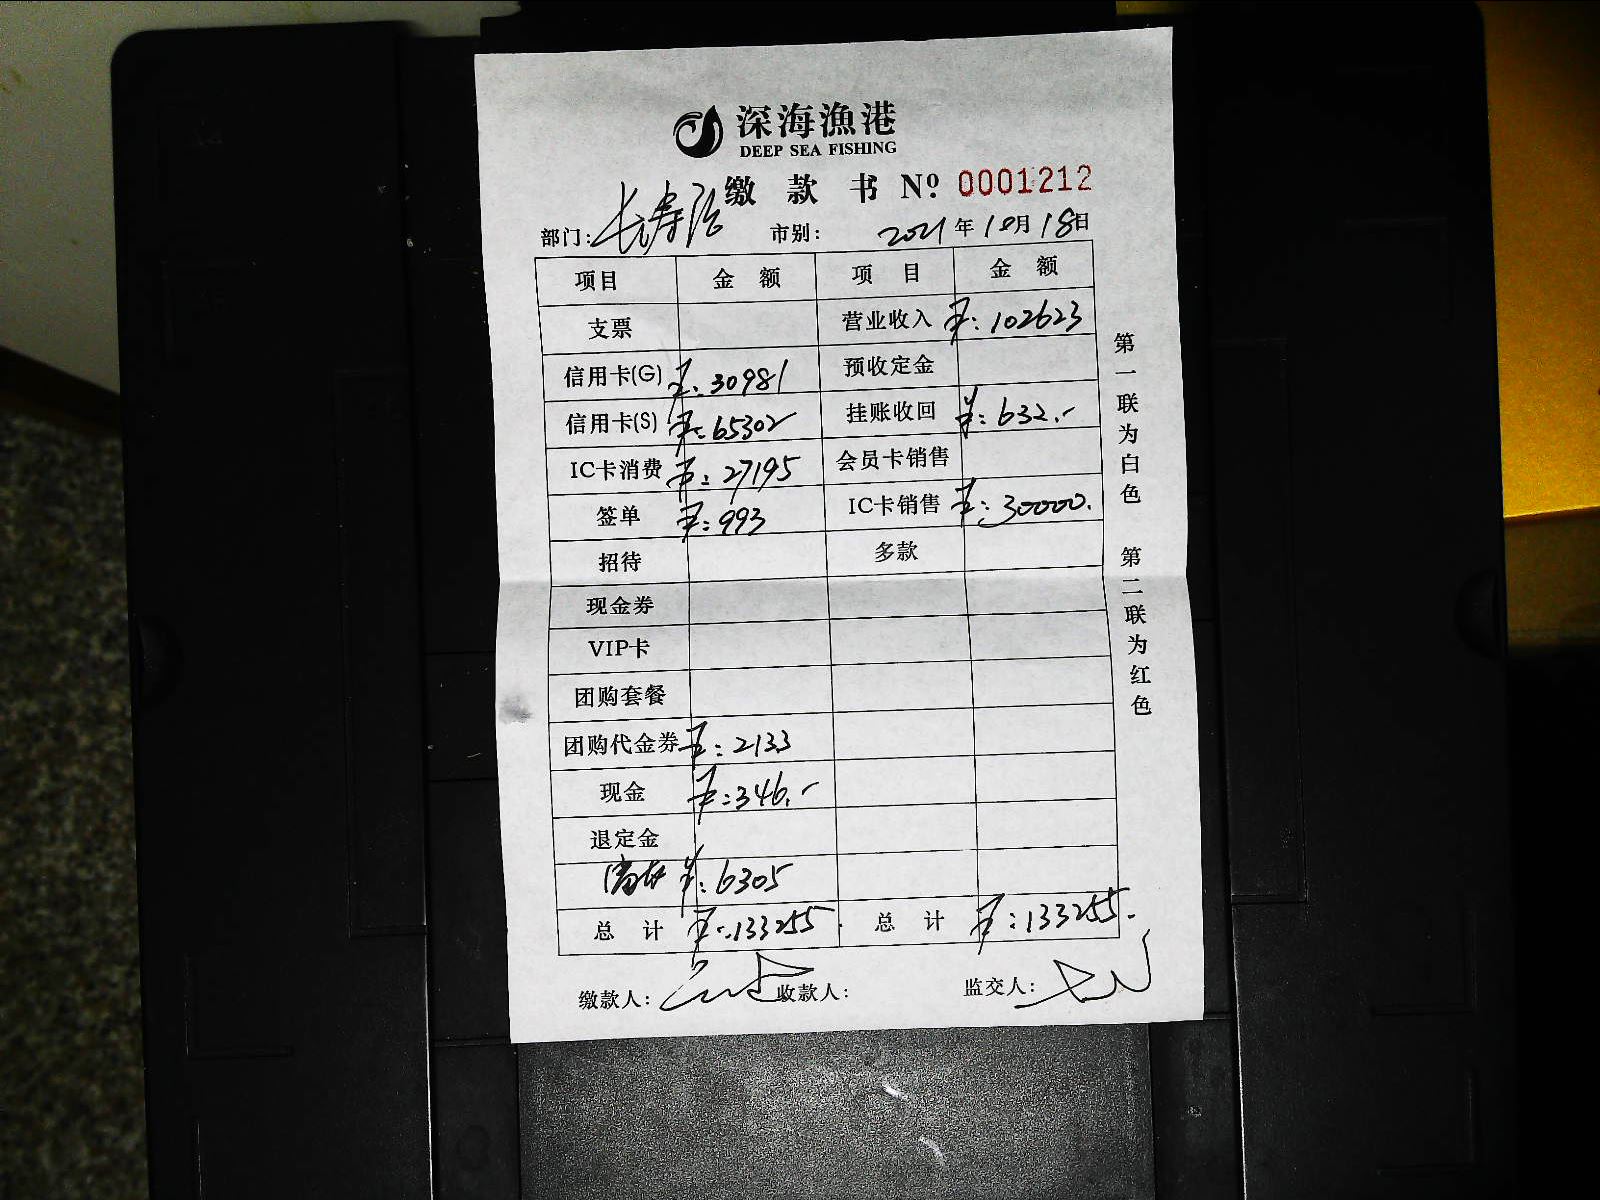 深海漁港
DEEP SEA FISHING
缴款书 Nº 0001212
部门: 长寿路 市别: 2021年10月18日
项目 金额 项目 金额
支票 营业收入 ¥:102623
信用卡(G) ¥:30981 预收定金
信用卡(S) ¥:65302 挂账收回 ¥:632.-
IC卡消费 ¥:27195 会员卡销售
签单 ¥:993 IC卡销售 ¥:30000.
招待 多款
现金券
VIP卡
团购套餐
团购代金券 ¥:2133
现金 ¥:346.-
退定金
¥:6305
总计 ¥:133255. 总计 ¥:133255.
缴款人: 收款人: 监交人:
第一联为白色 第二联为红色